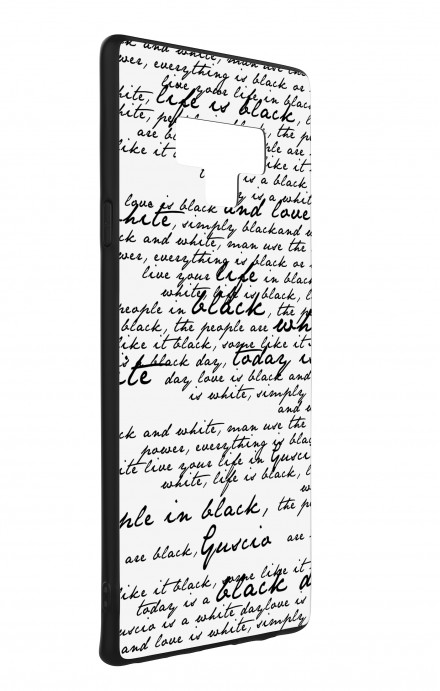 and white, man use the
wer, everything is black or
live your life in black
hite, life is black, l
hite, pe the pe
are bl ple are
like it
is a black
y is a whit
love is black and love
hite, simply blackand w
ck and white, man use the
wer, everything is black or
live your life in black
white life is black, l
people in black, the p
black, the people are wh
like it black, some like it
is a black day, today is
te day love is black and
is white, simply
and w
ck and white, man use the
power, everything is blac
ite live your life in Guscio
white, life is black, l
w
ple in black, the p
are black, Guscio are
like it black, some like it
today is a black d
uscio is a white daylove is
and love is white, simply